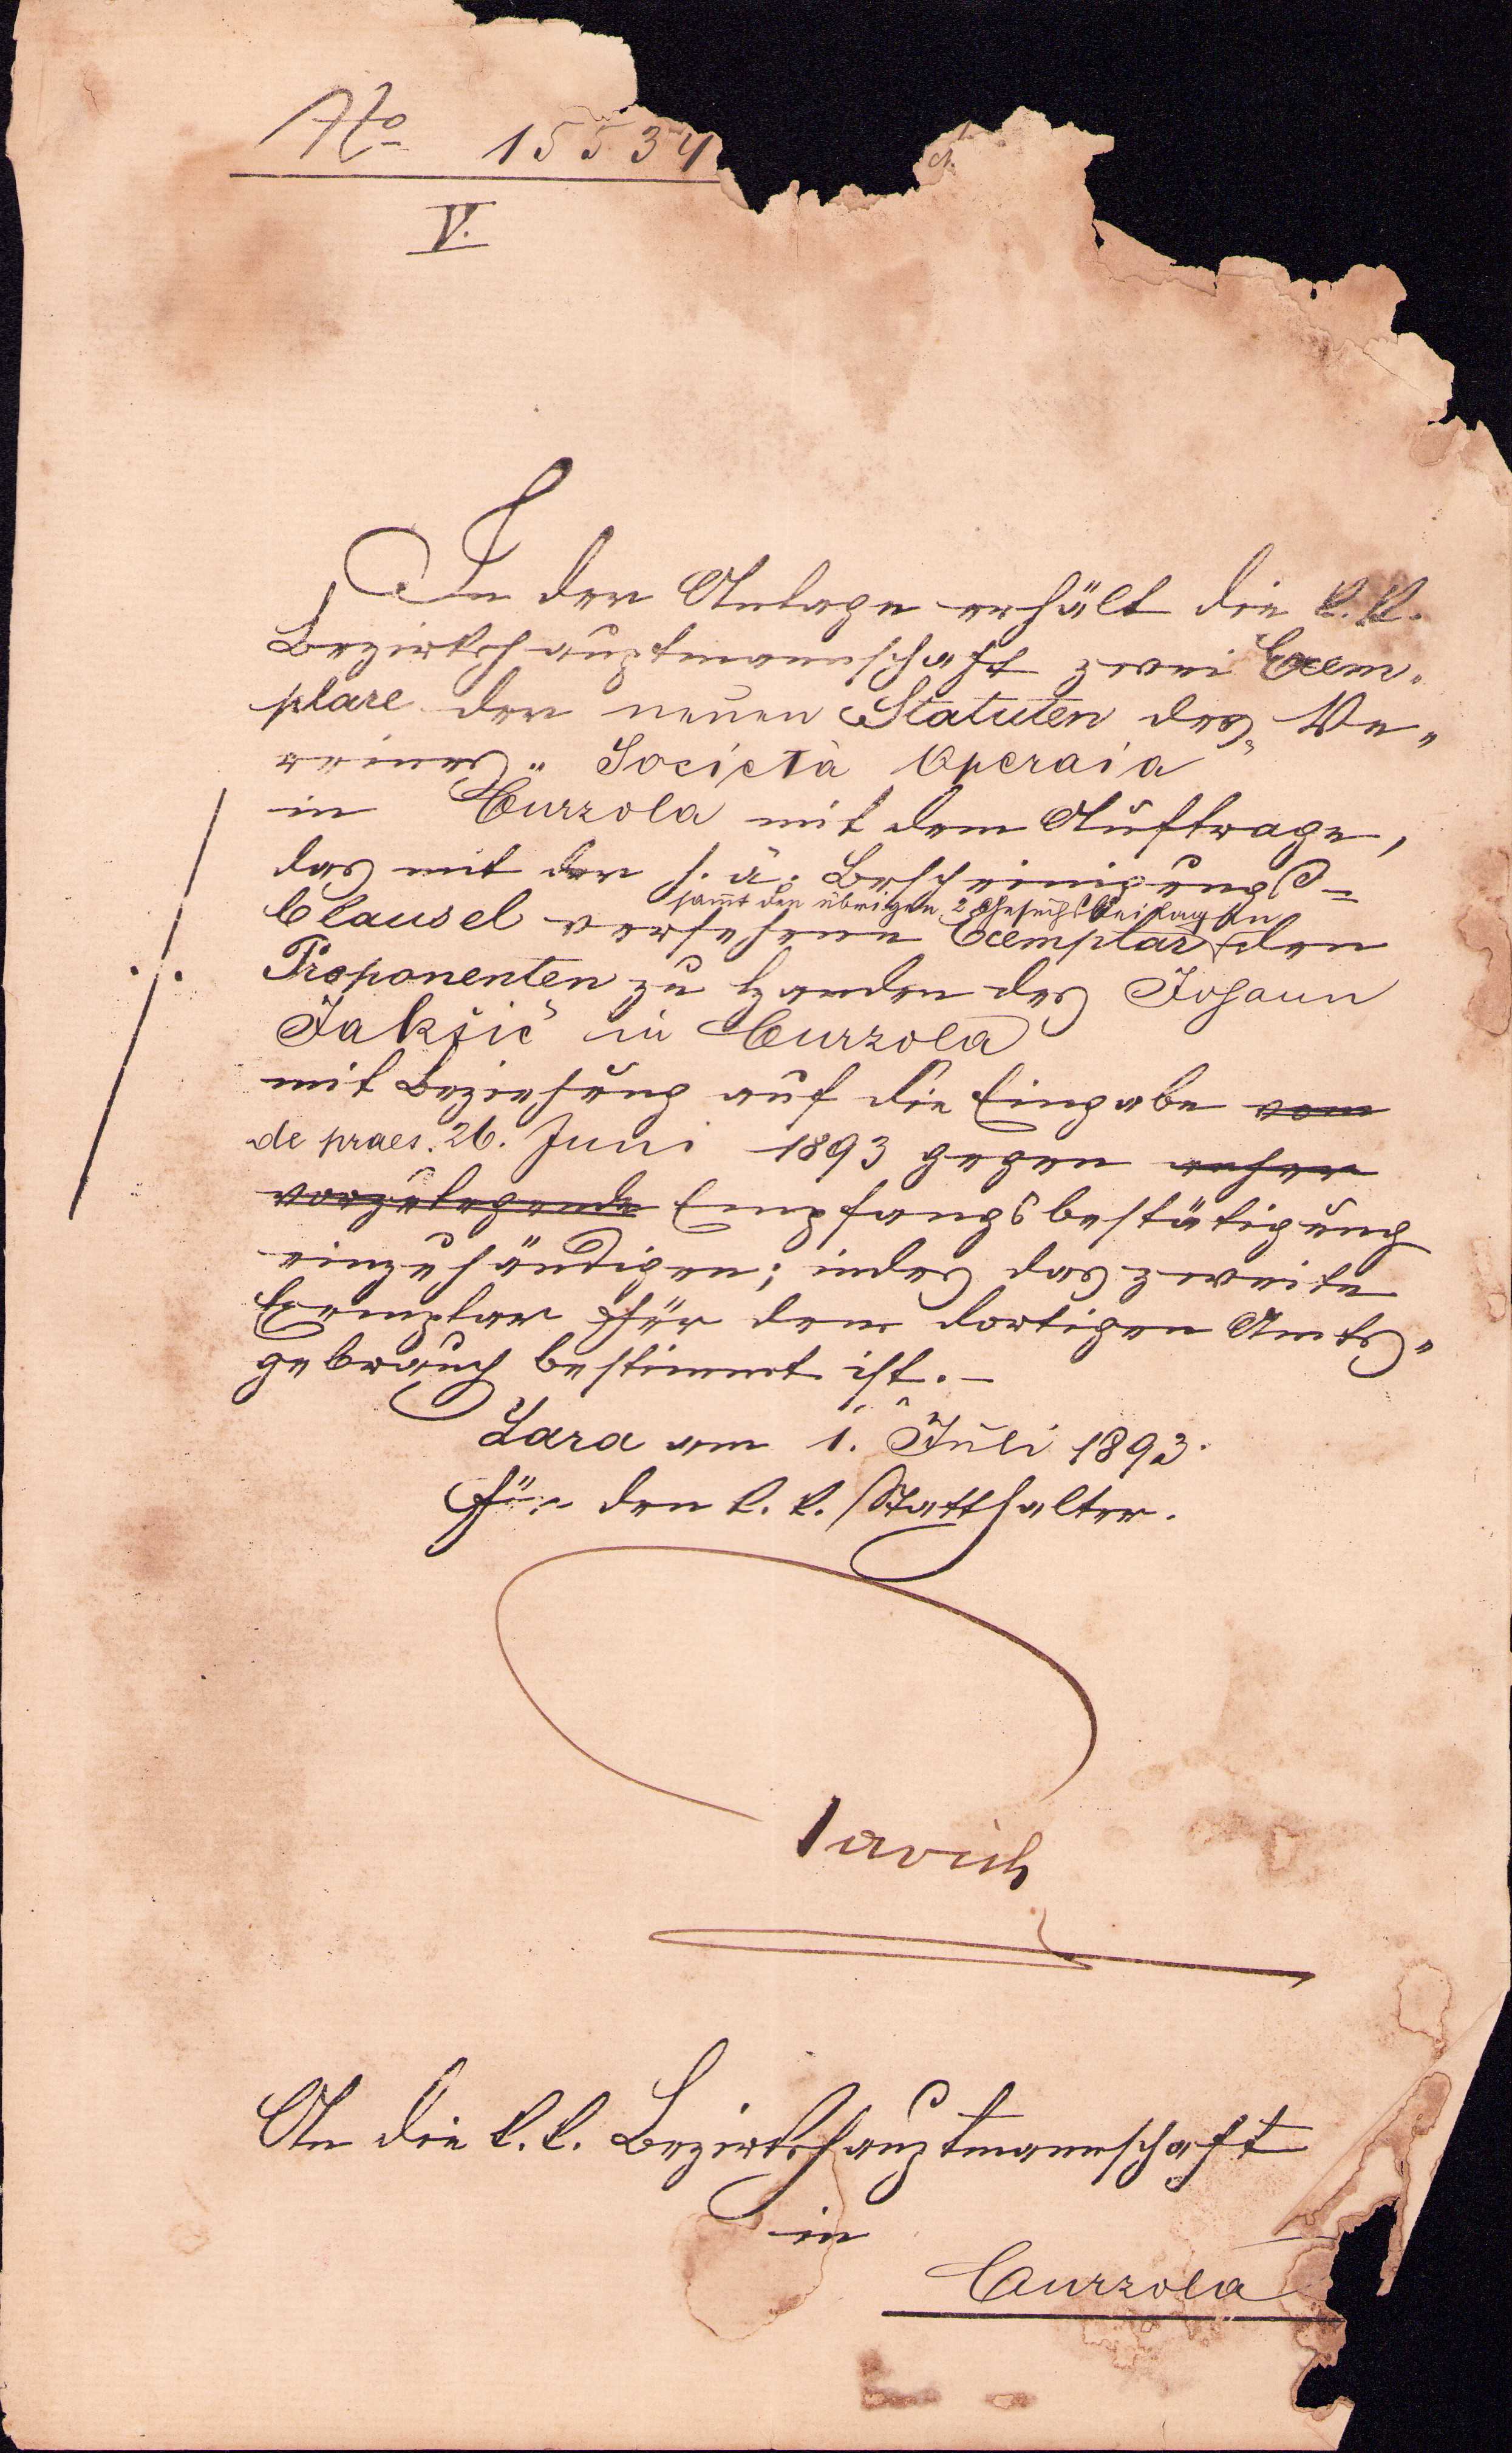 No 15534
V.
In der Anlage erhält die k. k.
Bezirkshauptmannschaft zwei Exem-
plare der neuen Statuten des Ve-
reines „Società Operaia
in Curzola mit dem Auftrage,
das mit der h. ä. Bescheinigungs-
samt den übrigen 2 Gesuchsbeilagen
Clausel versehene Exemplar den
Proponenten zu Handen des Johann
Jakšić in Curzola
mit Beziehung auf die Eingabe vom
de praes. 26. Juni 1893 gegen anher
vorzulegende Empfangsbestätigung
einzuhändigen; indes das zweite
Exemplar für den dortigen Amts-
gebrauch bestimmt ist. –
Zara am 1. Juli 1893.
Für den k. k. Statthalter.
An die k. k. Bezirkshauptmannschaft
in
Curzola